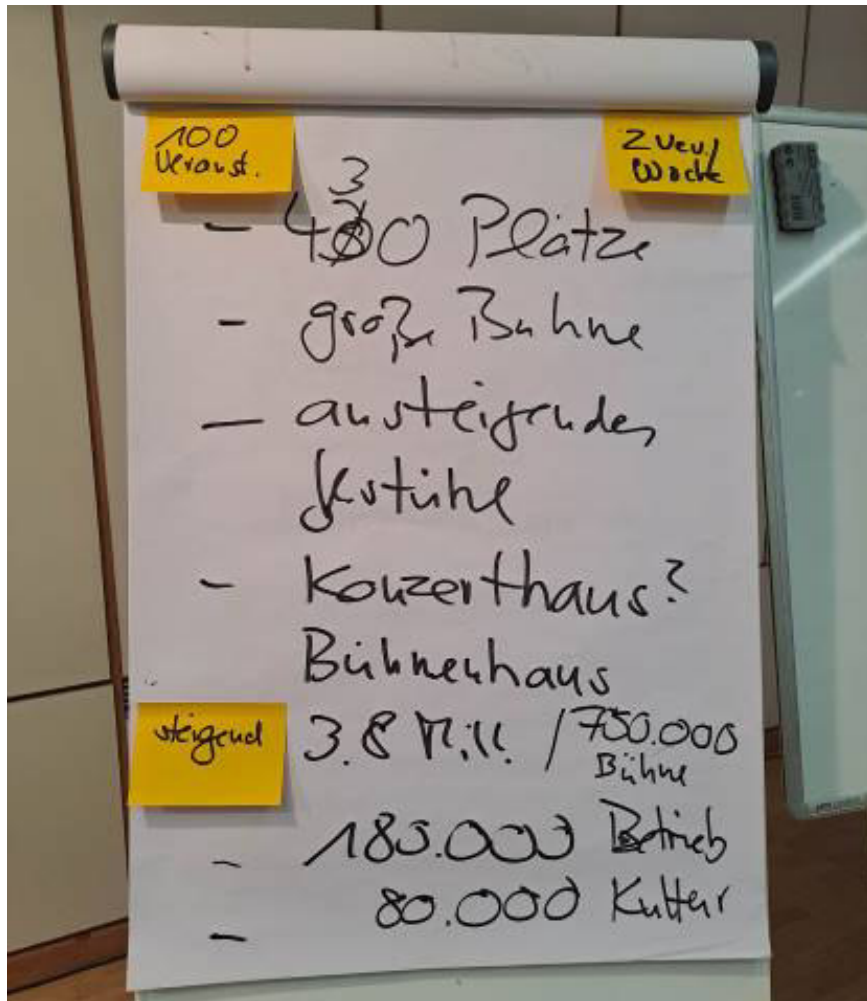 100
Veranst.
2 Ver./
Woche
3
- 480 Plätze
- große Bühne
- ansteigendes
Gestühl
- Konzerthaus?
Bühnenhaus
steigend
3.8 Mill. / 750.000
Bühne
- 180.000 Betrieb
80.000 Kultur
-